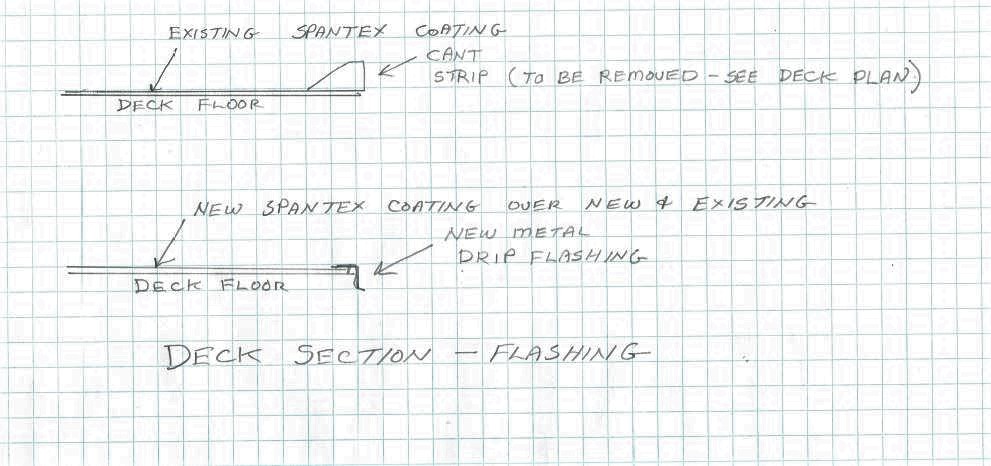 EXISTING SPANTEX COATING
CANT
STRIP (TO BE REMOVED - SEE DECK PLAN)
DECK FLOOR
NEW SPANTEX COATING OVER NEW & EXISTING
NEW METAL
DRIP FLASHING
DECK FLOOR
DECK SECTION - FLASHING